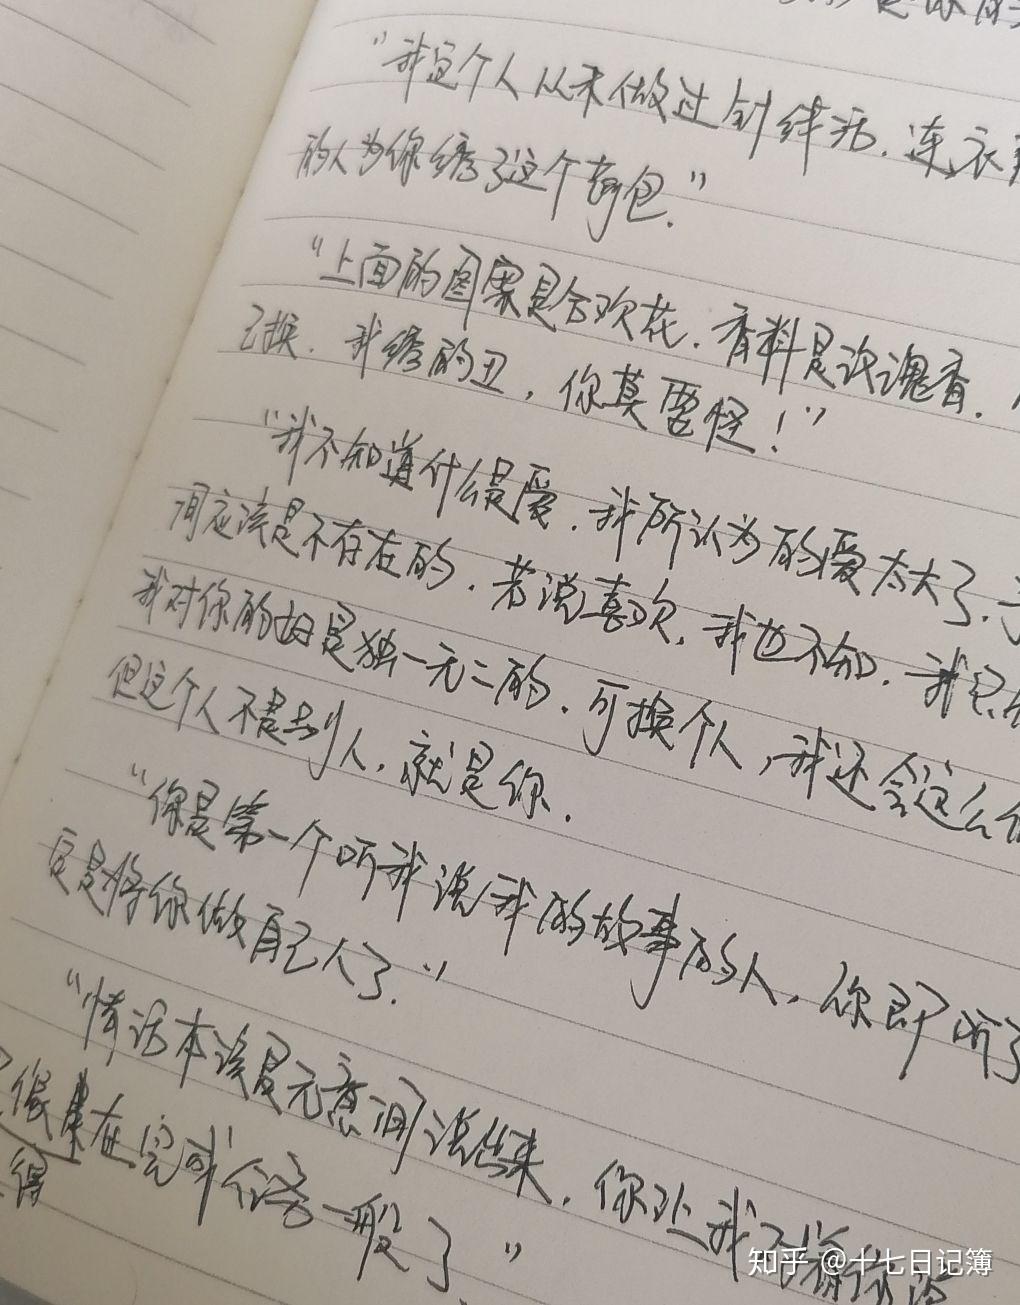 “我这个人从未做过针线活.连衣
的人为你绣了这个荷包.”
“上面的图案是合欢花.香料是沉魂香.
己换.我绣的丑,你莫要怪!”
“我不知道什么是爱.我所认为的爱太大了.
间应该是不存在的.若说喜欢,我也不知.我只
我对你的如是独一无二的.可换个人,我还会这么
但这个人不是别人,就是你.
“你是第一个听我说我的故事的人,你即听了
定是将你做自己人了.”
“情话本该是无意间说出来,你让我
像是在完成任务一般了.”
得
知乎 @十七日记簿